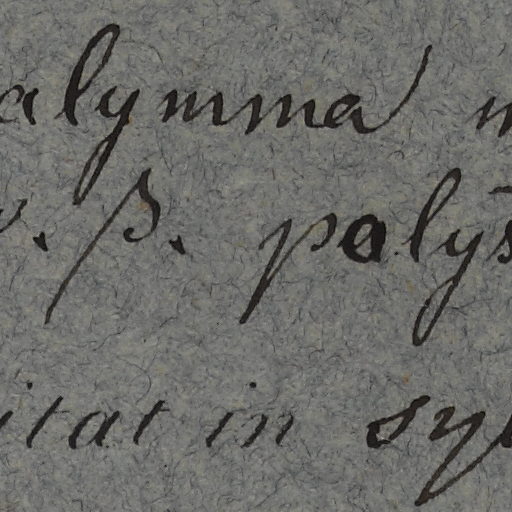 alymma
v. β. polys
itat in sy